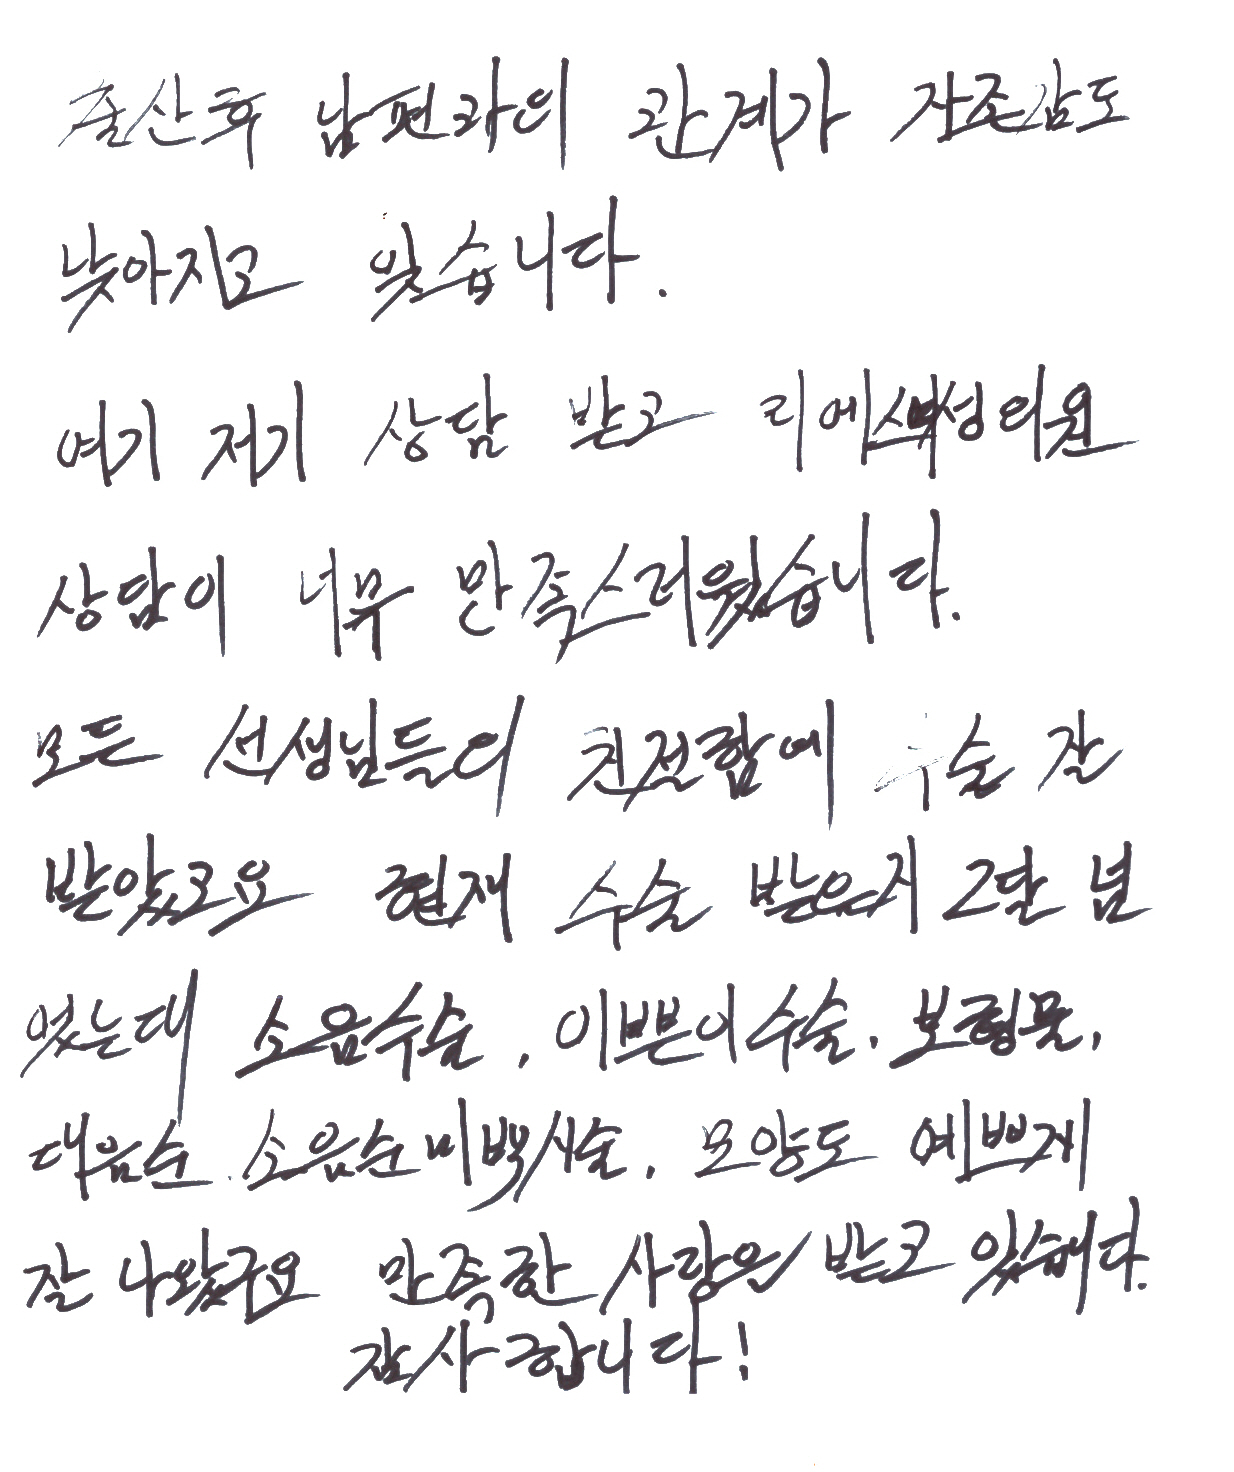 출산후 남편과의 관계가 자존감도
낮아지고 있습니다.
여기 저기 상담 받고 리에스여성의원
상담이 너무 만족스러웠습니다.
모든 선생님들의 친절함에 수술 잘
받았고요 현재 수술 받은지 2달 넘
었는데 소음수술, 이쁜이수술, 보형물,
대음순, 소음순미백시술, 모양도 예쁘게
잘 나왔구요 만족한 사랑은 받고 있습니다.
감사합니다!